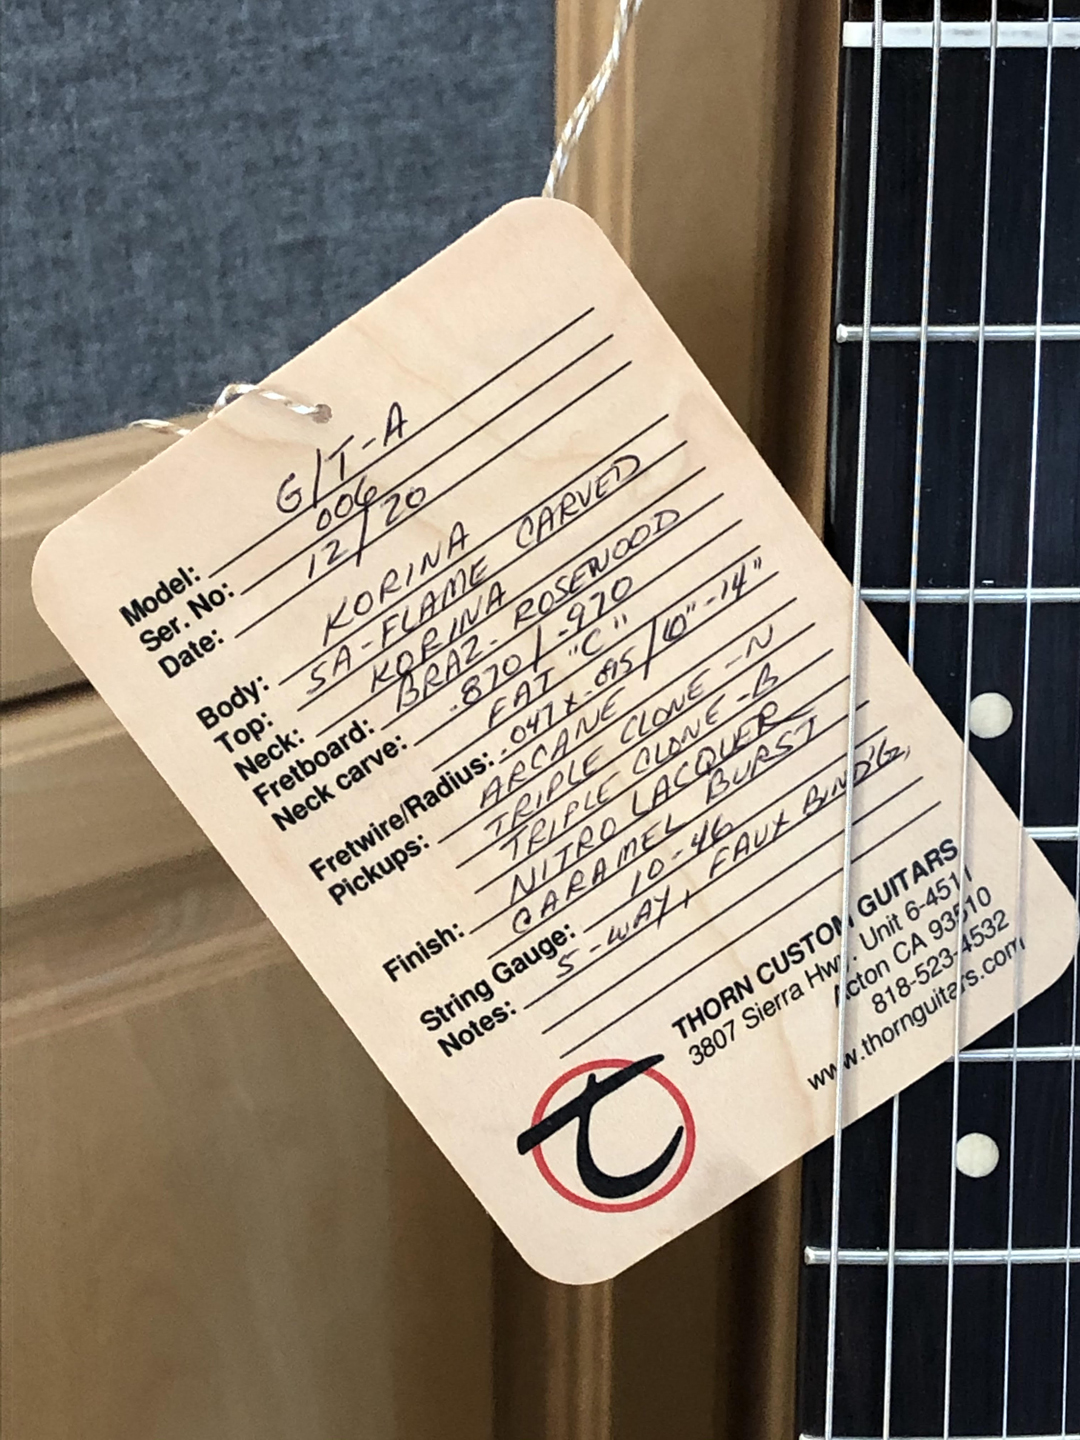 Model: G/T-A
Ser. No: 006
Date: 12/20
Body: KORINA
Top: 5A-FLAME CARVED
Neck: KORINA
Fretboard: BRAZ. ROSEWOOD
Neck carve: .870/.970
FAT "C"
Fretwire/Radius: .047 x .095/10"-14"
Pickups: ARCANE
TRIPLE CLONE -N
TRIPLE CLONE -B
Finish: NITRO LACQUER
CARAMEL BURST
String Gauge: 10-46
Notes: 5-WAY, FAUX BIND'G,
THORN CUSTOM GUITARS
3807 Sierra Hwy. Unit 6-4511
Acton CA 93510
818-523-4532
www.thornguitars.com
t